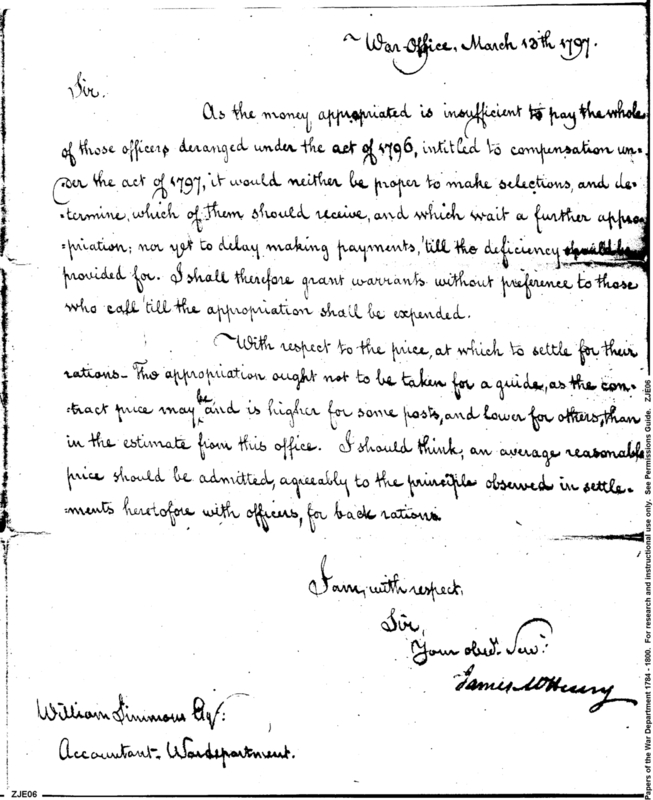 War-Office, March 13th 1797.
Sir.
As the money appropriated is insufficient to pay the whole
of those officers deranged under the act of 1796, intitled to compensation un-
der the act of 1797, it would neither be proper to make selections, and de-
-termine, which of them should receive, and which wait a further appro
-priation; nor yet to delay making payments, 'till the deficiency should be
provided for. I shall therefore grant warrants without preference to those
who call 'till the appropriation shall be expended.
With respect to the price, at which to settle for their
rations- The appropriation ought not to be taken for a guide, as the con-
-tract price may be and is higher for some posts, and lower for others, than
in the estimate from this office. I should think, an average reasonable
price should be admitted, agreeably to the principle observed in settle-
-ments heretofore with officers, for back rations.
I am, with respect,
Sir,
Your obedt. Servt.
James McHenry
William Simmons Esqr:
Accountant- Wardepartment.
ZJE06
Papers of the War Department 1784 - 1800. For research and instructional use only. See Permissions Guide. ZJE06